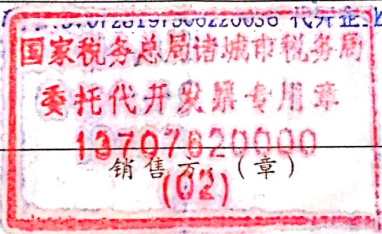 代开企业
国家税务总局诸城市税务局
委托代开发票专用章
13707820000
销售方：（章）
(02)